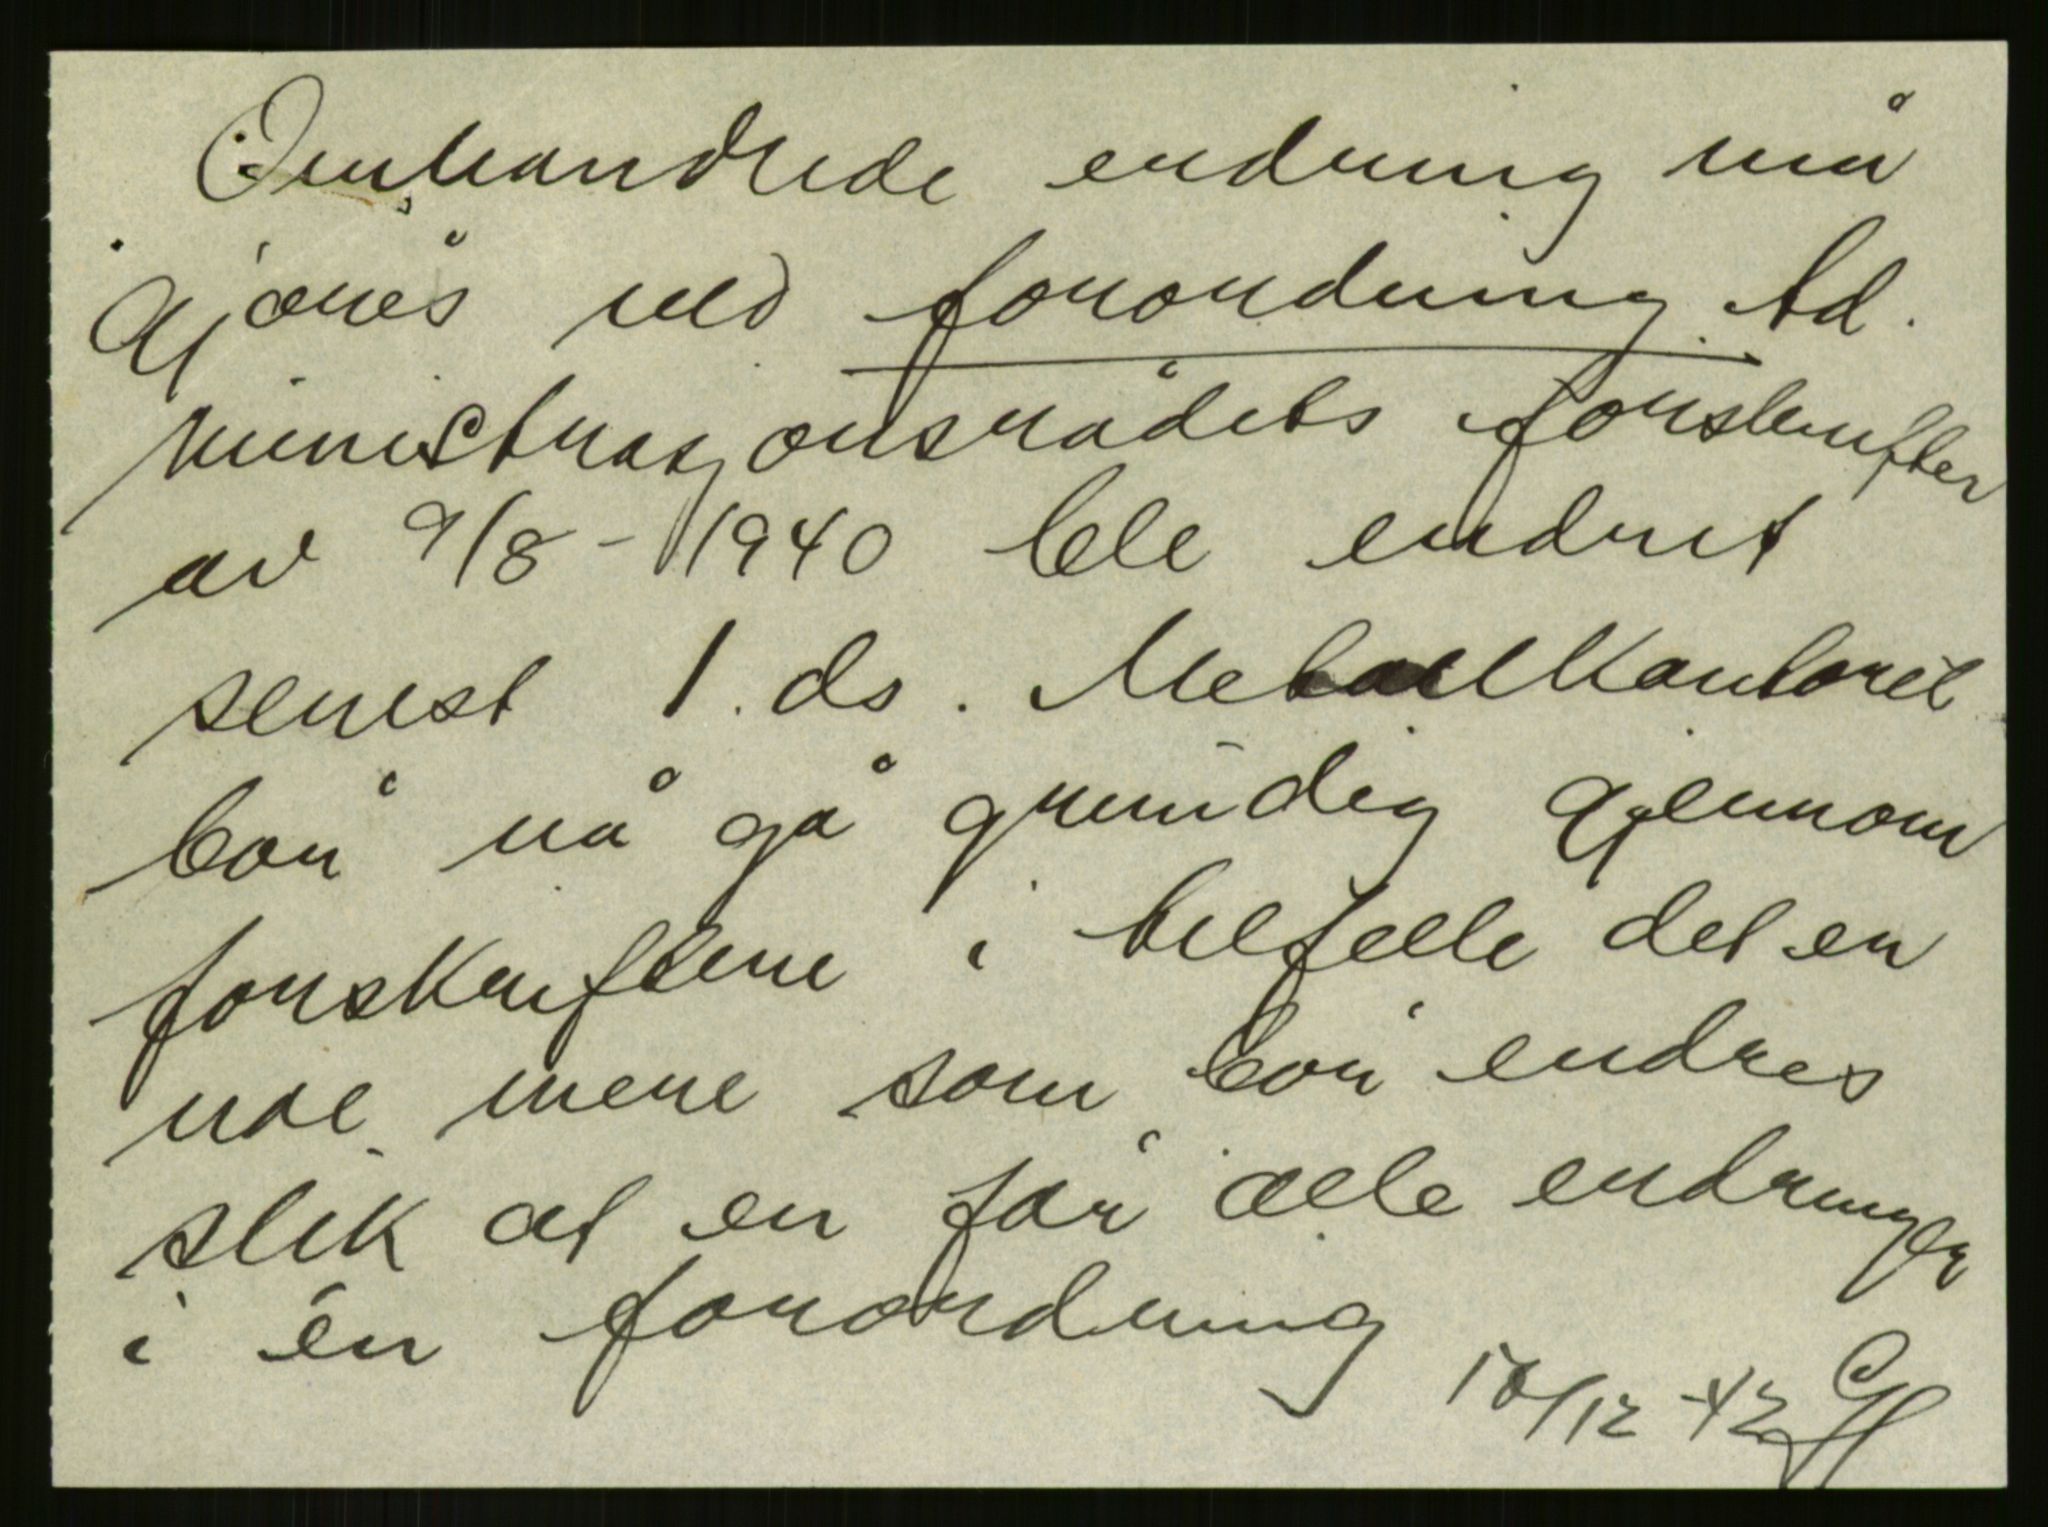 Omhandlede endring må
gjøres ved forordning. Ad.
ministrasjonsrådets forskrifter
av 9/8 - 1940 ble endret
senest 1. ds. Metallkontoret
bør nå gå grundig gjennom
forskriftene i tilfelle det er
noe mere som bør endres
slik at en får alle endringer
i én forordning
-42